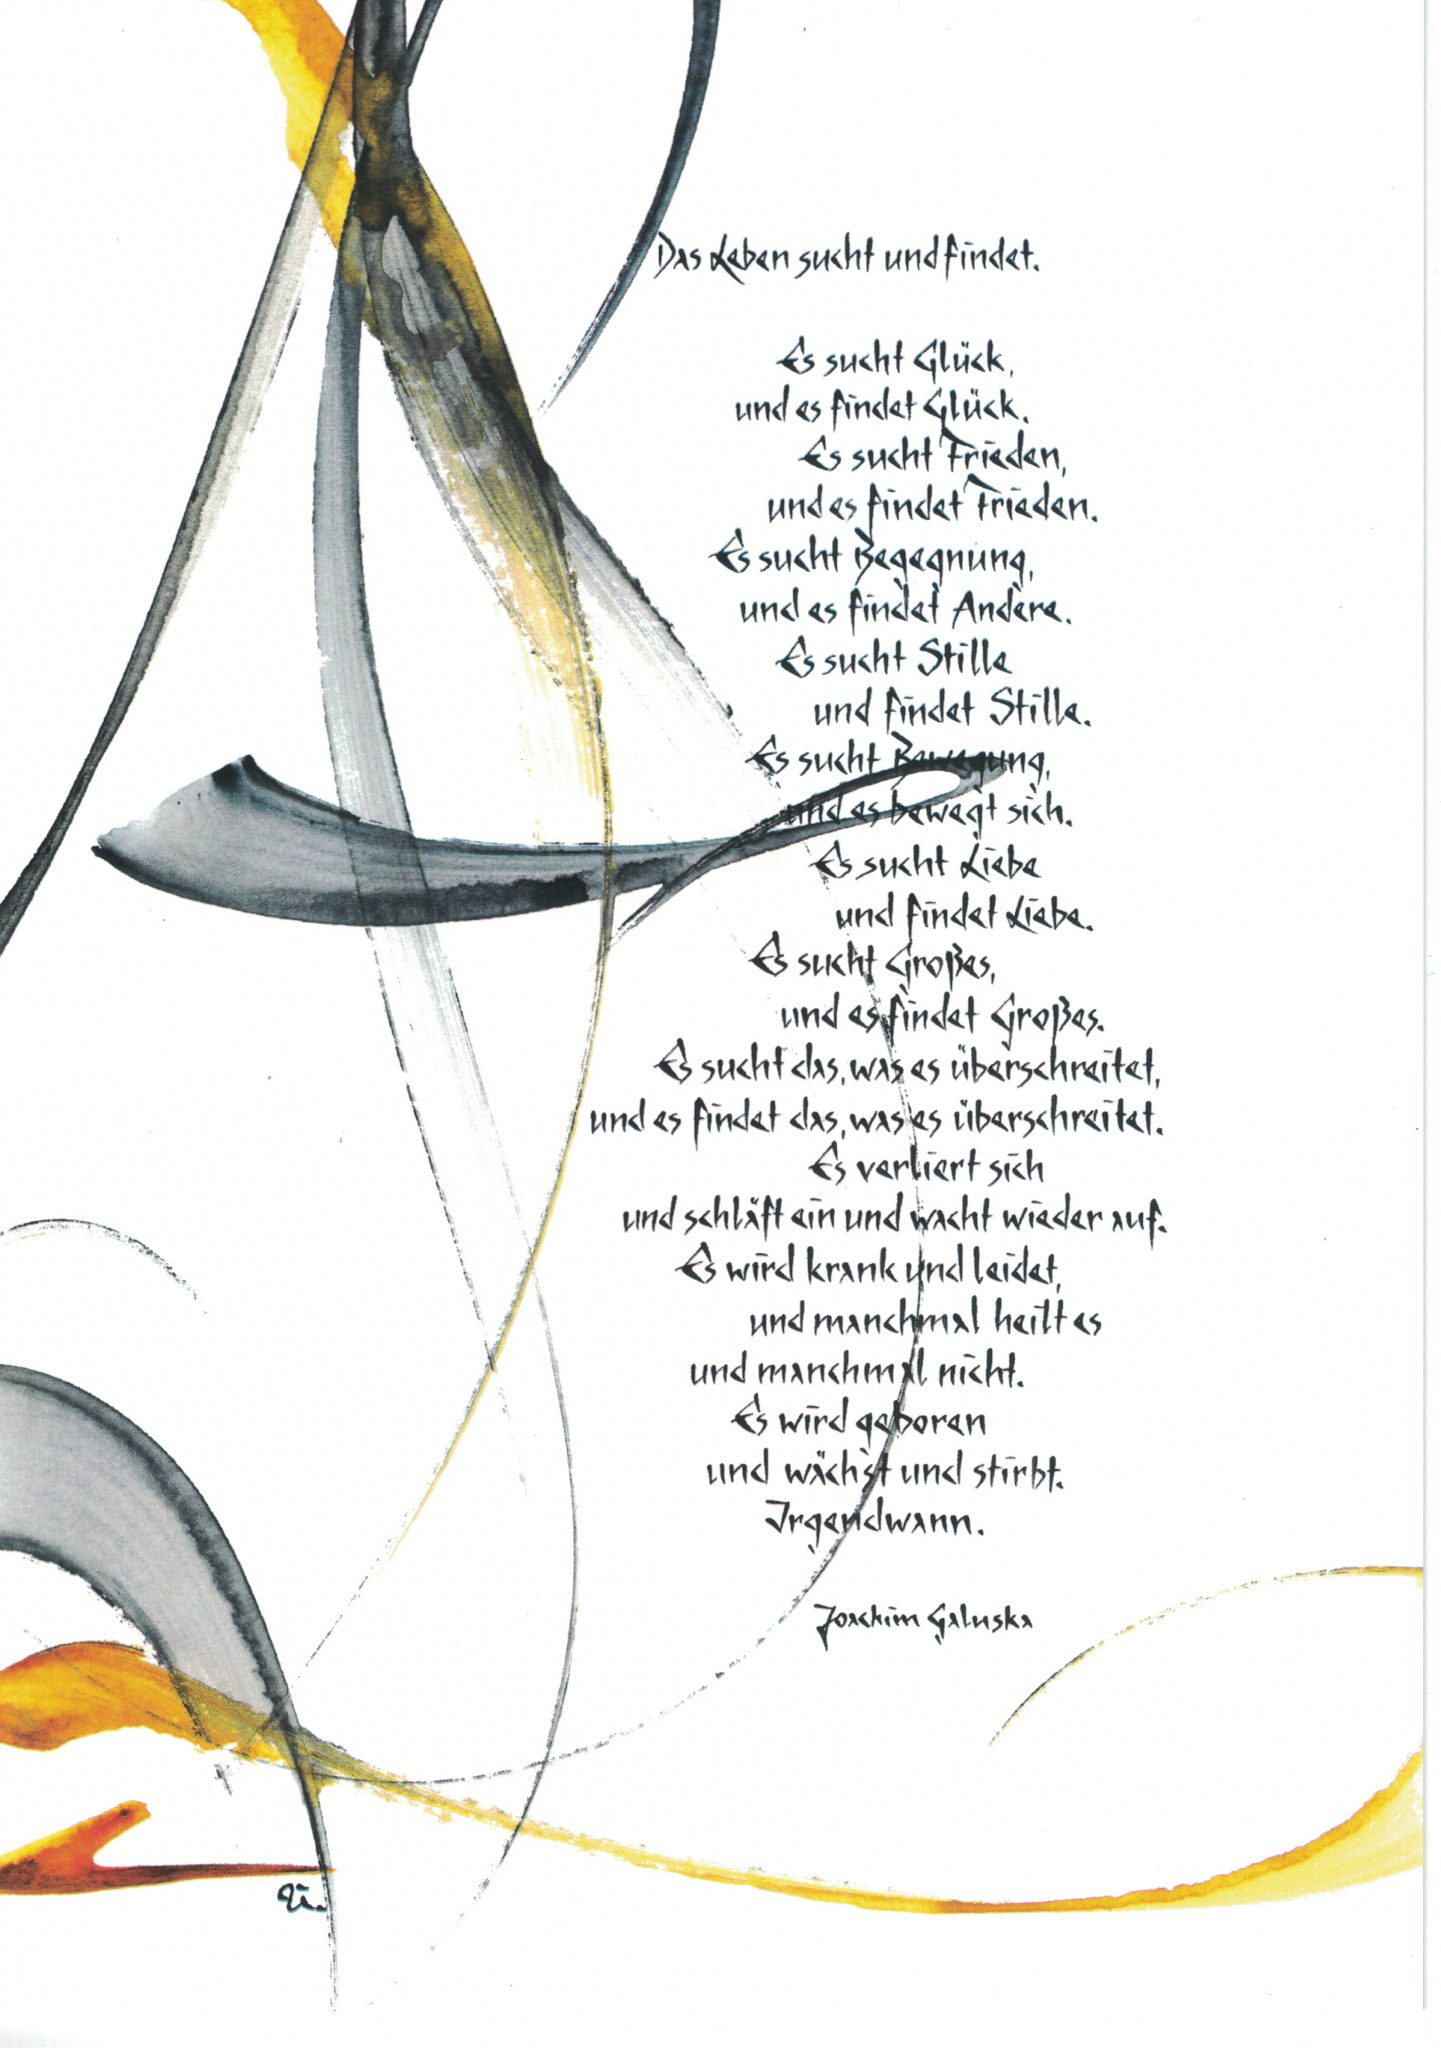 Das Leben sucht und findet.
Es sucht Glück,
und es findet Glück.
Es sucht Frieden,
und es findet Frieden.
Es sucht Begegnung,
und es findet Andere.
Es sucht Stille
und findet Stille.
Es sucht Bewegung,
und es bewegt sich.
Es sucht Liebe
und findet Liebe.
Es sucht Großes,
und es findet Großes.
Es sucht das, was es überschreitet,
und es findet das, was es überschreitet.
Es verliert sich
und schläft ein und wacht wieder auf.
Es wird krank und leidet,
und manchmal heilt es
und manchmal nicht.
Es wird geboren
und wächst und stirbt.
Irgendwann.
Joachim Galuska